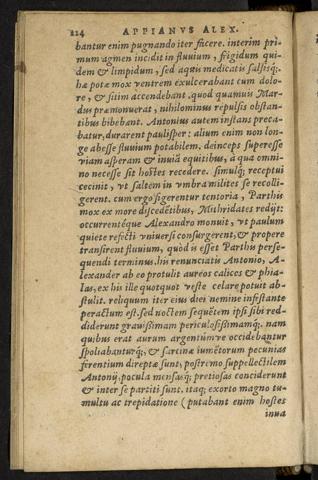 224 APPIANVS ALEX.
bantur enim pugnando iter facere. interim pri-
mum agmen incidit in fluuium, frigidum qui-
dem & limpidum, sed aquis medicatis salsisq́;.
hæ potæ mox ventrem exulcerabant cum dolo-
re, & sitim accendebant. quod quamuis Mar-
dus præmonuerat, nihilominus repulsis obstan-
tibus bibebant. Antonius autem instans preca-
batur, durarent paulisper: alium enim non lon-
ge abesse fluuium potabilem. deinceps superesse
viam asperam & inuiā equitibus, a qua omni-
no necesse sit hostes recedere. simulq́; receptui
cecinit, vt saltem in vmbra milites se recolli-
gerent. cum ergo figerentur tentoria, Parthis
mox ex more discedētibus, Mithridates redijt:
occurrentéque Alexandro monuit, vt paulum
quiete refecti vniuersi consurgerent, & propere
transirent fluuium, quòd is esset Parthis perse-
quendi terminus. his renunciatis Antonio, A-
lexander ab eo protulit aureos calices & phia-
las, ex his ille quotquot veste celare potuit ab-
stulit. reliquum iter eius diei nemine infestante
peractum est. sed noctem sequētem ipsi sibi red-
diderunt grauissimam periculosissimamq́;. nam
quibus erat aurum argentúmve occidebantur
spoliabanturq́;, & sarcinæ iumētorum pecunias
ferentium direptæ sunt, postremo suppellectilem
Antonij, pocula mensasq́; pretiosas conciderunt
& inter se partiti sunt. itaq; exorto magno tu-
multu ac trepidatione ( putabant enim hostes
inua